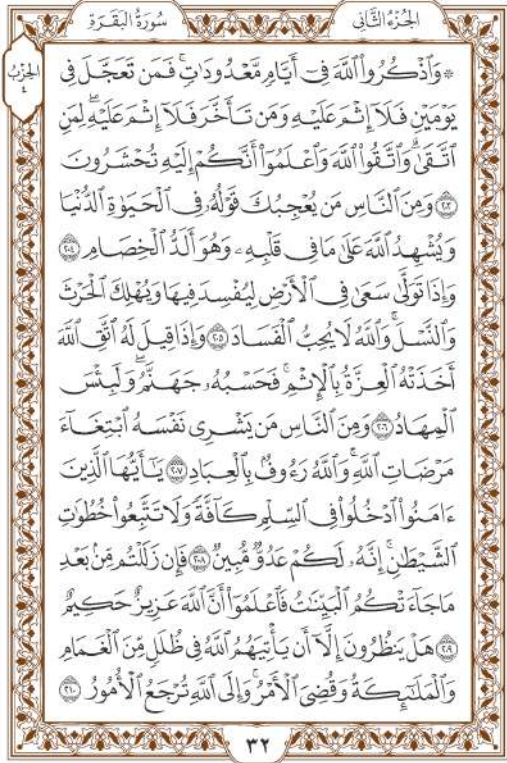 الجُزْءُ الثَّانِي
سُورَةُ البَقَرَةِ
الحِزْبُ
٤
۞ وَٱذۡكُرُواْ ٱللَّهَ فِيٓ أَيَّامٖ مَّعۡدُودَٰتٖۚ فَمَن تَعَجَّلَ فِي
يَوۡمَيۡنِ فَلَآ إِثۡمَ عَلَيۡهِ وَمَن تَأَخَّرَ فَلَآ إِثۡمَ عَلَيۡهِۖ لِمَنِ
ٱتَّقَىٰۗ وَٱتَّقُواْ ٱللَّهَ وَٱعۡلَمُوٓاْ أَنَّكُمۡ إِلَيۡهِ تُحۡشَرُونَ
٢٠٣ وَمِنَ ٱلنَّاسِ مَن يُعۡجِبُكَ قَوۡلُهُۥ فِي ٱلۡحَيَوٰةِ ٱلدُّنۡيَا
وَيُشۡهِدُ ٱللَّهَ عَلَىٰ مَا فِي قَلۡبِهِۦ وَهُوَ أَلَدُّ ٱلۡخِصَامِ ٢٠٤
وَإِذَا تَوَلَّىٰ سَعَىٰ فِي ٱلۡأَرۡضِ لِيُفۡسِدَ فِيهَا وَيُهۡلِكَ ٱلۡحَرۡثَ
وَٱلنَّسۡلَۚ وَٱللَّهُ لَا يُحِبُّ ٱلۡفَسَادَ ٢٠٥ وَإِذَا قِيلَ لَهُ ٱتَّقِ ٱللَّهَ
أَخَذَتۡهُ ٱلۡعِزَّةُ بِٱلۡإِثۡمِۚ فَحَسۡبُهُۥ جَهَنَّمُۖ وَلَبِئۡسَ
ٱلۡمِهَادُ ٢٠٦ وَمِنَ ٱلنَّاسِ مَن يَشۡرِي نَفۡسَهُ ٱبۡتِغَآءَ
مَرۡضَاتِ ٱللَّهِۚ وَٱللَّهُ رَءُوفُۢ بِٱلۡعِبَادِ ٢٠٧ يَٰٓأَيُّهَا ٱلَّذِينَ
ءَامَنُواْ ٱدۡخُلُواْ فِي ٱلسِّلۡمِ كَآفَّةٗ وَلَا تَتَّبِعُواْ خُطُوَٰتِ
ٱلشَّيۡطَٰنِۚ إِنَّهُۥ لَكُمۡ عَدُوّٞ مُّبِينٞ ٢٠٨ فَإِن زَلَلۡتُم مِّنۢ بَعۡدِ
مَا جَآءَتۡكُمُ ٱلۡبَيِّنَٰتُ فَٱعۡلَمُوٓاْ أَنَّ ٱللَّهَ عَزِيزٌ حَكِيمٌ
٢٠٩ هَلۡ يَنظُرُونَ إِلَّآ أَن يَأۡتِيَهُمُ ٱللَّهُ فِي ظُلَلٖ مِّنَ ٱلۡغَمَامِ
وَٱلۡمَلَٰٓئِكَةُ وَقُضِيَ ٱلۡأَمۡرُۚ وَإِلَى ٱللَّهِ تُرۡجَعُ ٱلۡأُمُورُ ٢١٠
٣٢